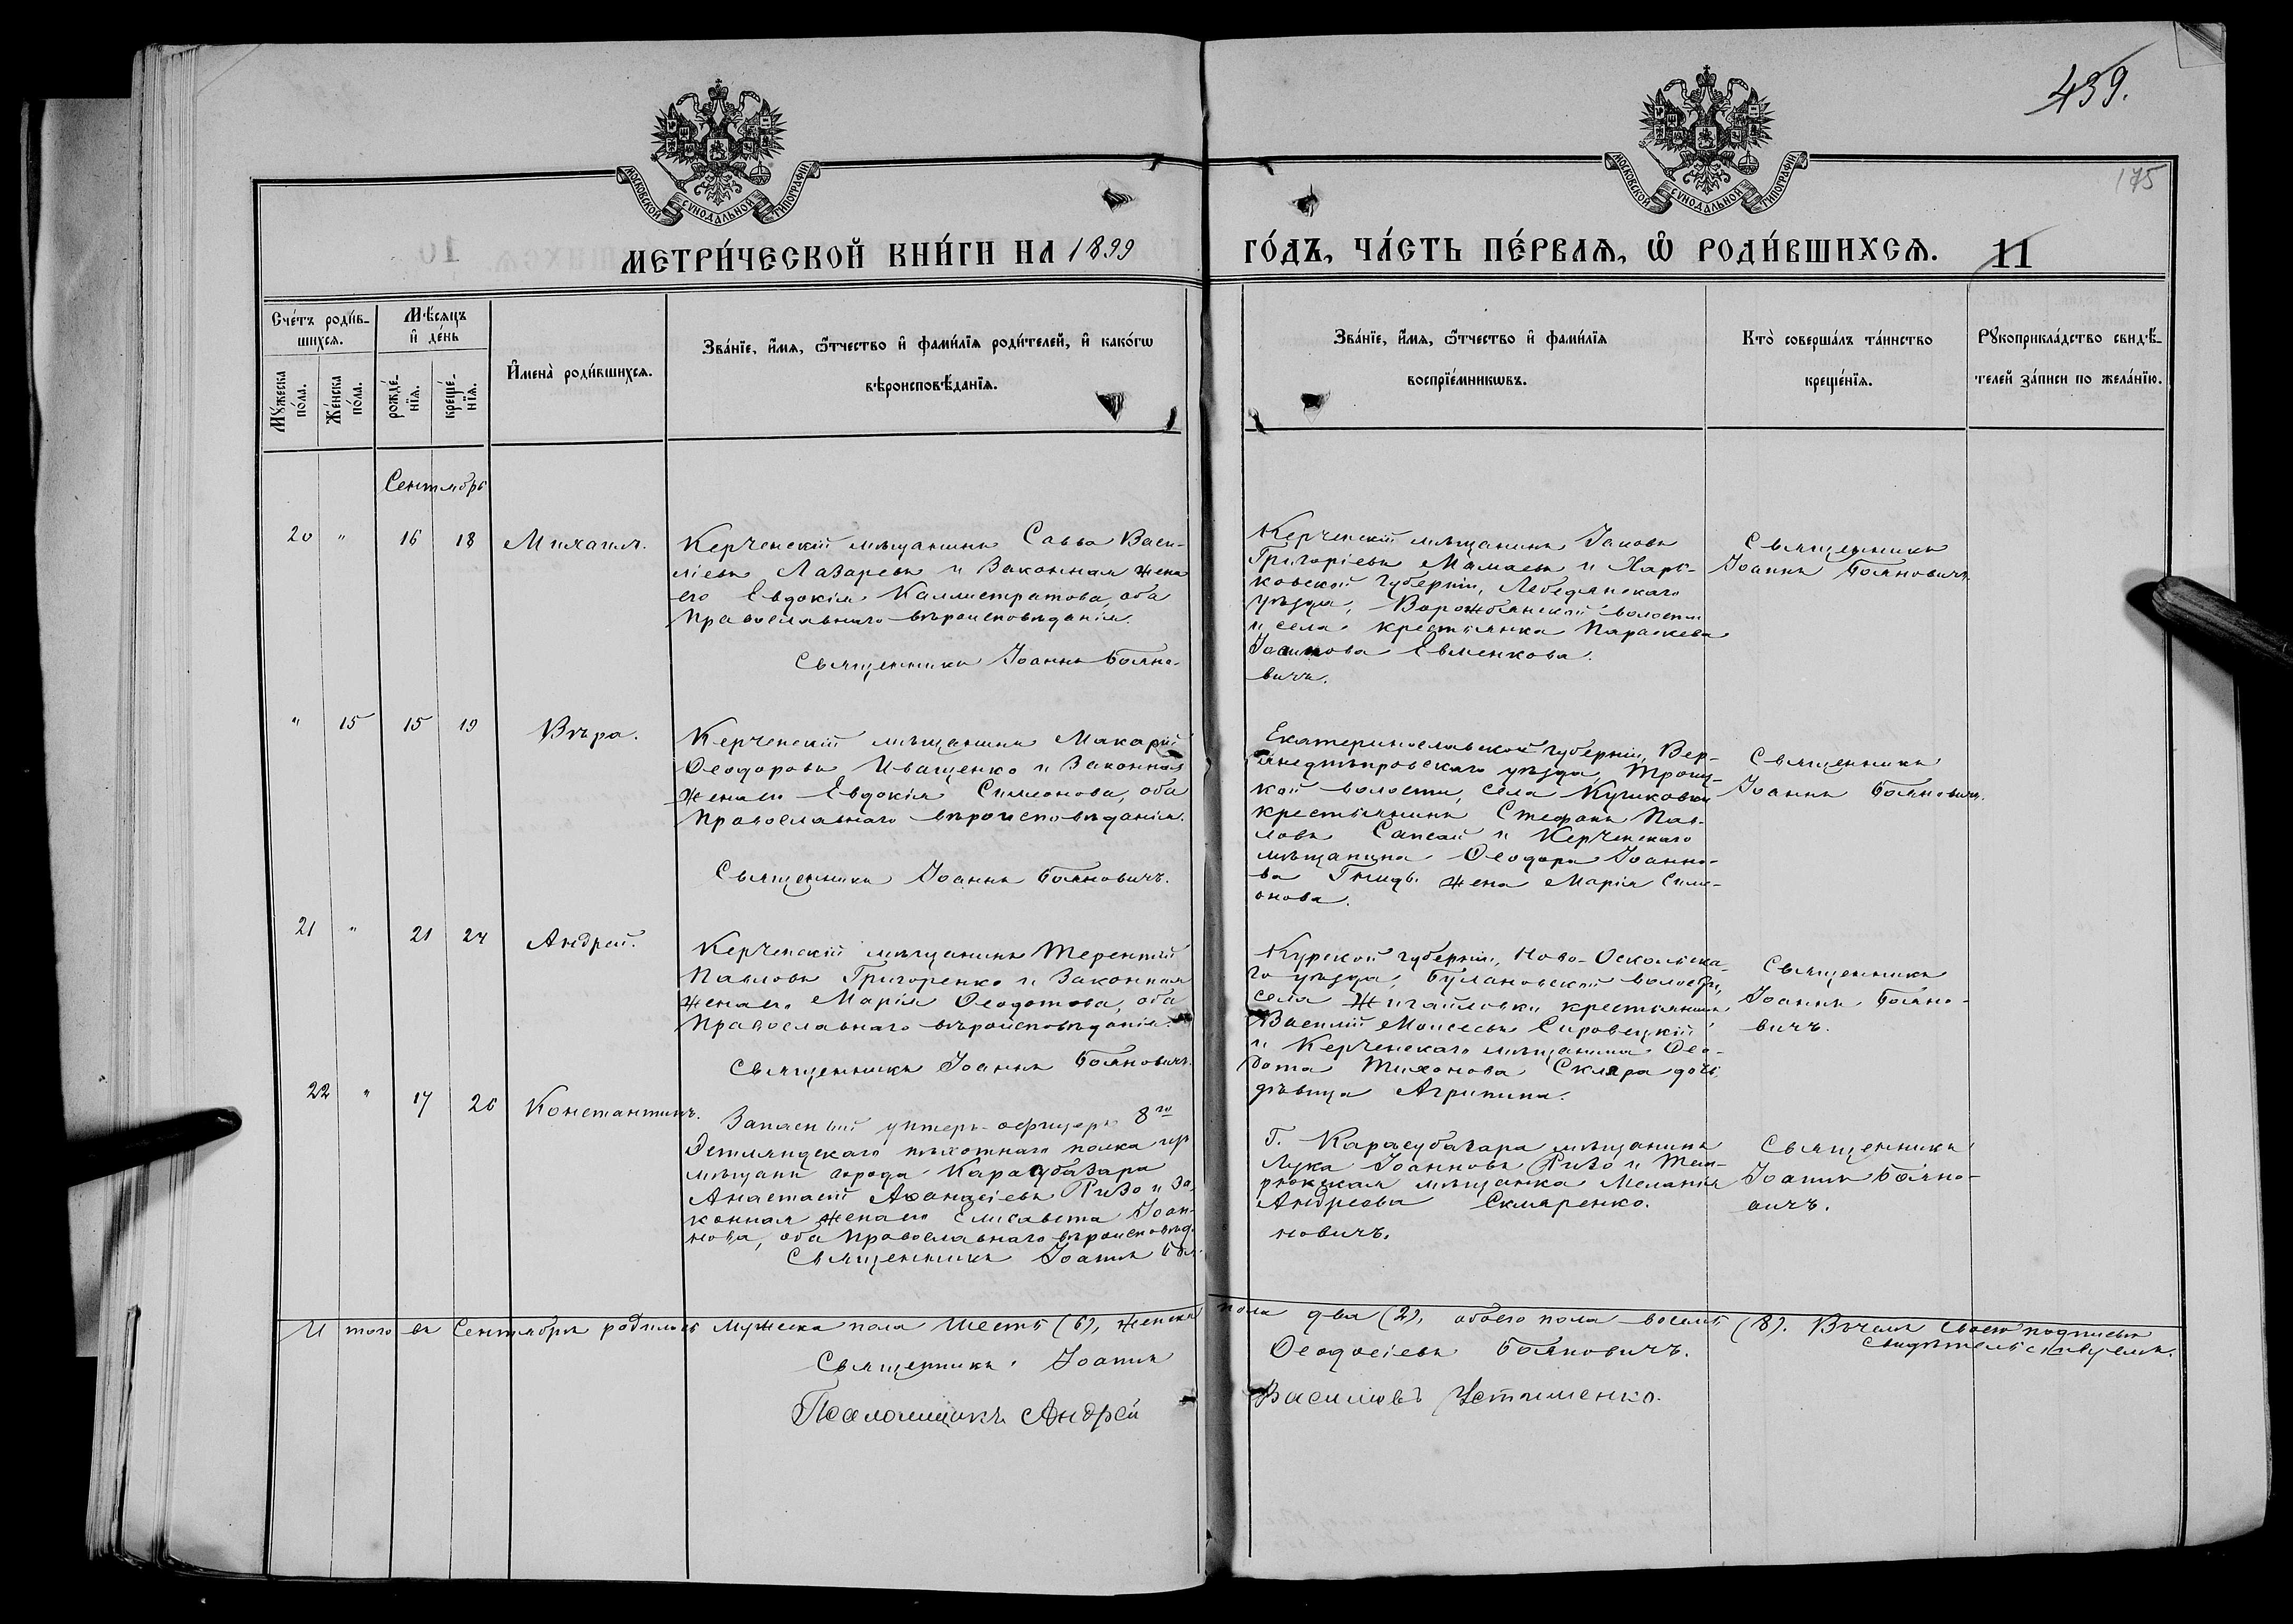 439.
175
МОСКОВСКОЙ СѴНОДАЛЬНОЙ ТИПОГРАФІИ
МОСКОВСКОЙ СѴНОДАЛЬНОЙ ТИПОГРАФІИ
МЕТРИ́ЧЕСКОЙ КНИ́ГИ НА 1899
ГО́ДЪ, ЧА́СТЬ ПЕ́РВАЯ, Ѡ РОДИ́ВШИХСЯ. 11
Сче́тъ роди́в-
шихся.
Мꙋ́жеска по́ла.
Же́нска по́ла.
Мѣ́сяцъ и де́нь
рожде́-нїя.
креще́-нїя.
Имена̀ роди́вшихся.
Зва́нїе, и́мя, ѻ҆́тчество и фами́лїя роди́телей, и како́гѡ
вѣроисповѣ́данїя.
Зва́нїе, и́мя, ѻ҆́тчество и фами́лїя
воспрїе́мникѡвъ.
Кто̀ соверша́лъ та́инство
креще́нїя.
Рꙋкоприкла́дство свидѣ́-
телей за́писи по жела́нїю.
Сентябрь
20 " 16 18 Михаилъ.
Керченскій мѣщанинъ Савва Васи-
ліевъ Лазаревъ и законная жена
его Евдокія Каллистратова, оба
православнаго вѣроисповѣданія.
Священникъ Іоаннъ Бояно-
Керченскій мѣщанинъ Іаковъ
Григоріевъ Мамаевъ и Харь-
ковской губерніи, Лебедянскаго
уѣзда, Ворожбянской волости
и села крестьянка Параскева
Іоаннова Евменкова.
вичъ.
Священникъ
Іоаннъ Бояновичъ.
" 15 15 19 Вѣра.
Керченскій мѣщанинъ Макарій
Ѳеодоровъ Иващенко и законная
жена его Евдокія Симеонова, оба
православнаго вѣроисповѣданія.
Священникъ Іоаннъ Бояновичъ.
Екатеринославской губерніи, Вер-
хнеднѣпровскаго уѣзда, Троиц-
кой волости, села Кушковки
крестьянинъ Стефанъ Пав-
ловъ Сапсай и Керченскаго
мѣщанина Ѳеодора Іоанно-
ва жена Марія Симе-
онова.
Священникъ
Іоаннъ Бояновичъ.
21 " 21 24 Андрей.
Керченскій мѣщанинъ Терентій
Павловъ Григоренко и законная
жена его Марія Ѳеодотова, оба
православнаго вѣроисповѣданія.
Священникъ Іоаннъ Бояновичъ.
Курской губерніи, Ново-Оскольска-
го уѣзда, Булановской волости,
села Жигайловки крестьянинъ
Василій Моисеевъ Сировецкій
и Керченскаго мѣщанина Ѳео-
дота Тихонова Скляра дочь
дѣвица Агрипина.
Священникъ
Іоаннъ Бояно-
вичъ.
22 " 17 26 Константинъ.
Запасный унтеръ-офицеръ 8го
Эстляндскаго пѣхотнаго полка
мѣщанинъ города Карасубазара
Анастасій Аѳанасіевъ Ризо и за-
конная жена его Елисавета Іоан-
нова, оба православнаго вѣроисповѣд.
Священникъ Іоаннъ Боя-
Г. Карасубазара мѣщанинъ
Лука Іоанновъ Ризо и Тем-
рюкская мѣщанка Меланія
Андреева Скляренко.
новичъ.
Священникъ
Іоаннъ Бояно-
вичъ.
Итого въ Сентябрѣ родилось мужеска пола шесть (6), женска пола два (2), обоего пола восемь (8). Въ чемъ своею подписью
свидѣтельствуемъ.
Священникъ Іоаннъ Ѳеодосіевъ Бояновичъ.
Псаломщикъ Андрей Василіевъ Устименко.